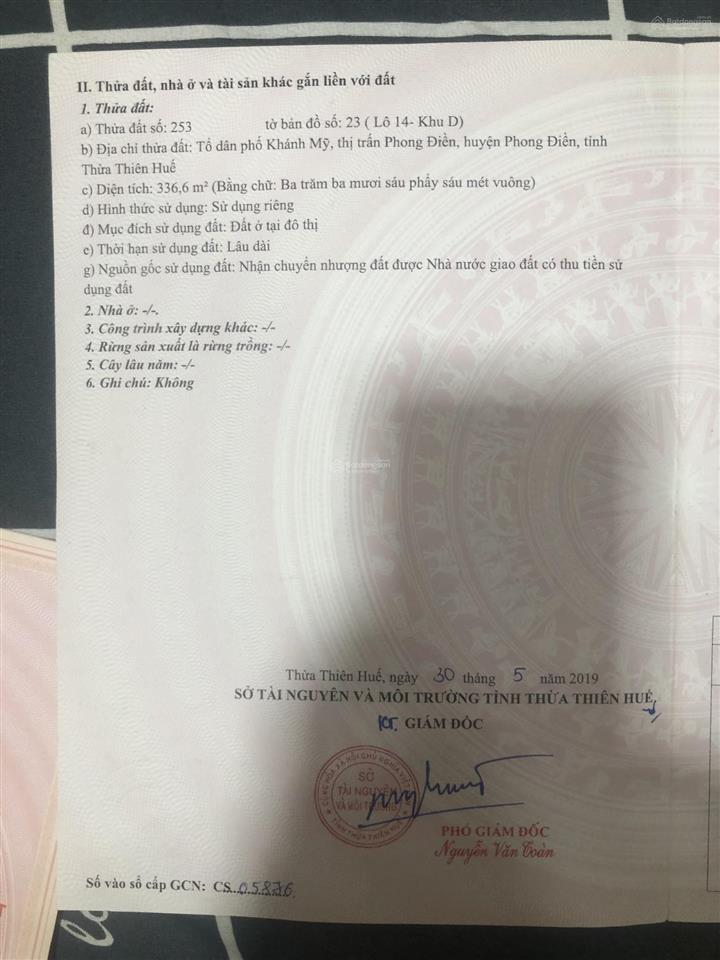 II. Thửa đất, nhà ở và tài sản khác gắn liền với đất
1. Thửa đất:
a) Thửa đất số: 253 tờ bản đồ số: 23 ( Lô 14- Khu D)
b) Địa chỉ thửa đất: Tổ dân phố Khánh Mỹ, thị trấn Phong Điền, huyện Phong Điền, tỉnh
Thừa Thiên Huế
c) Diện tích: 336,6 m² (Bằng chữ: Ba trăm ba mươi sáu phẩy sáu mét vuông)
d) Hình thức sử dụng: Sử dụng riêng
đ) Mục đích sử dụng đất: Đất ở tại đô thị
e) Thời hạn sử dụng đất: Lâu dài
g) Nguồn gốc sử dụng đất: Nhận chuyển nhượng đất được Nhà nước giao đất có thu tiền sử
dụng đất
2. Nhà ở: -/-.
3. Công trình xây dựng khác: -/-
4. Rừng sản xuất là rừng trồng: -/-
5. Cây lâu năm: -/-
6. Ghi chú: Không
Batdongsan
Thừa Thiên Huế, ngày 30 tháng 5 năm 2019
SỞ TÀI NGUYÊN VÀ MÔI TRƯỜNG TỈNH THỪA THIÊN HUẾ
KT. GIÁM ĐỐC
CỘNG HÒA XÃ HỘI CHỦ NGHĨA VIỆT
SỞ
TÀI NGUYÊN
VÀ MÔI TRƯỜNG
TỈNH THỪA THIÊN HUẾ
PHÓ GIÁM ĐỐC
Nguyễn Văn Toàn
Số vào sổ cấp GCN: CS 05876